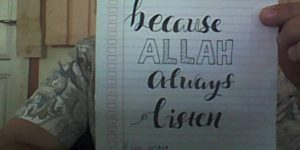 because
ALLAH
always
listen